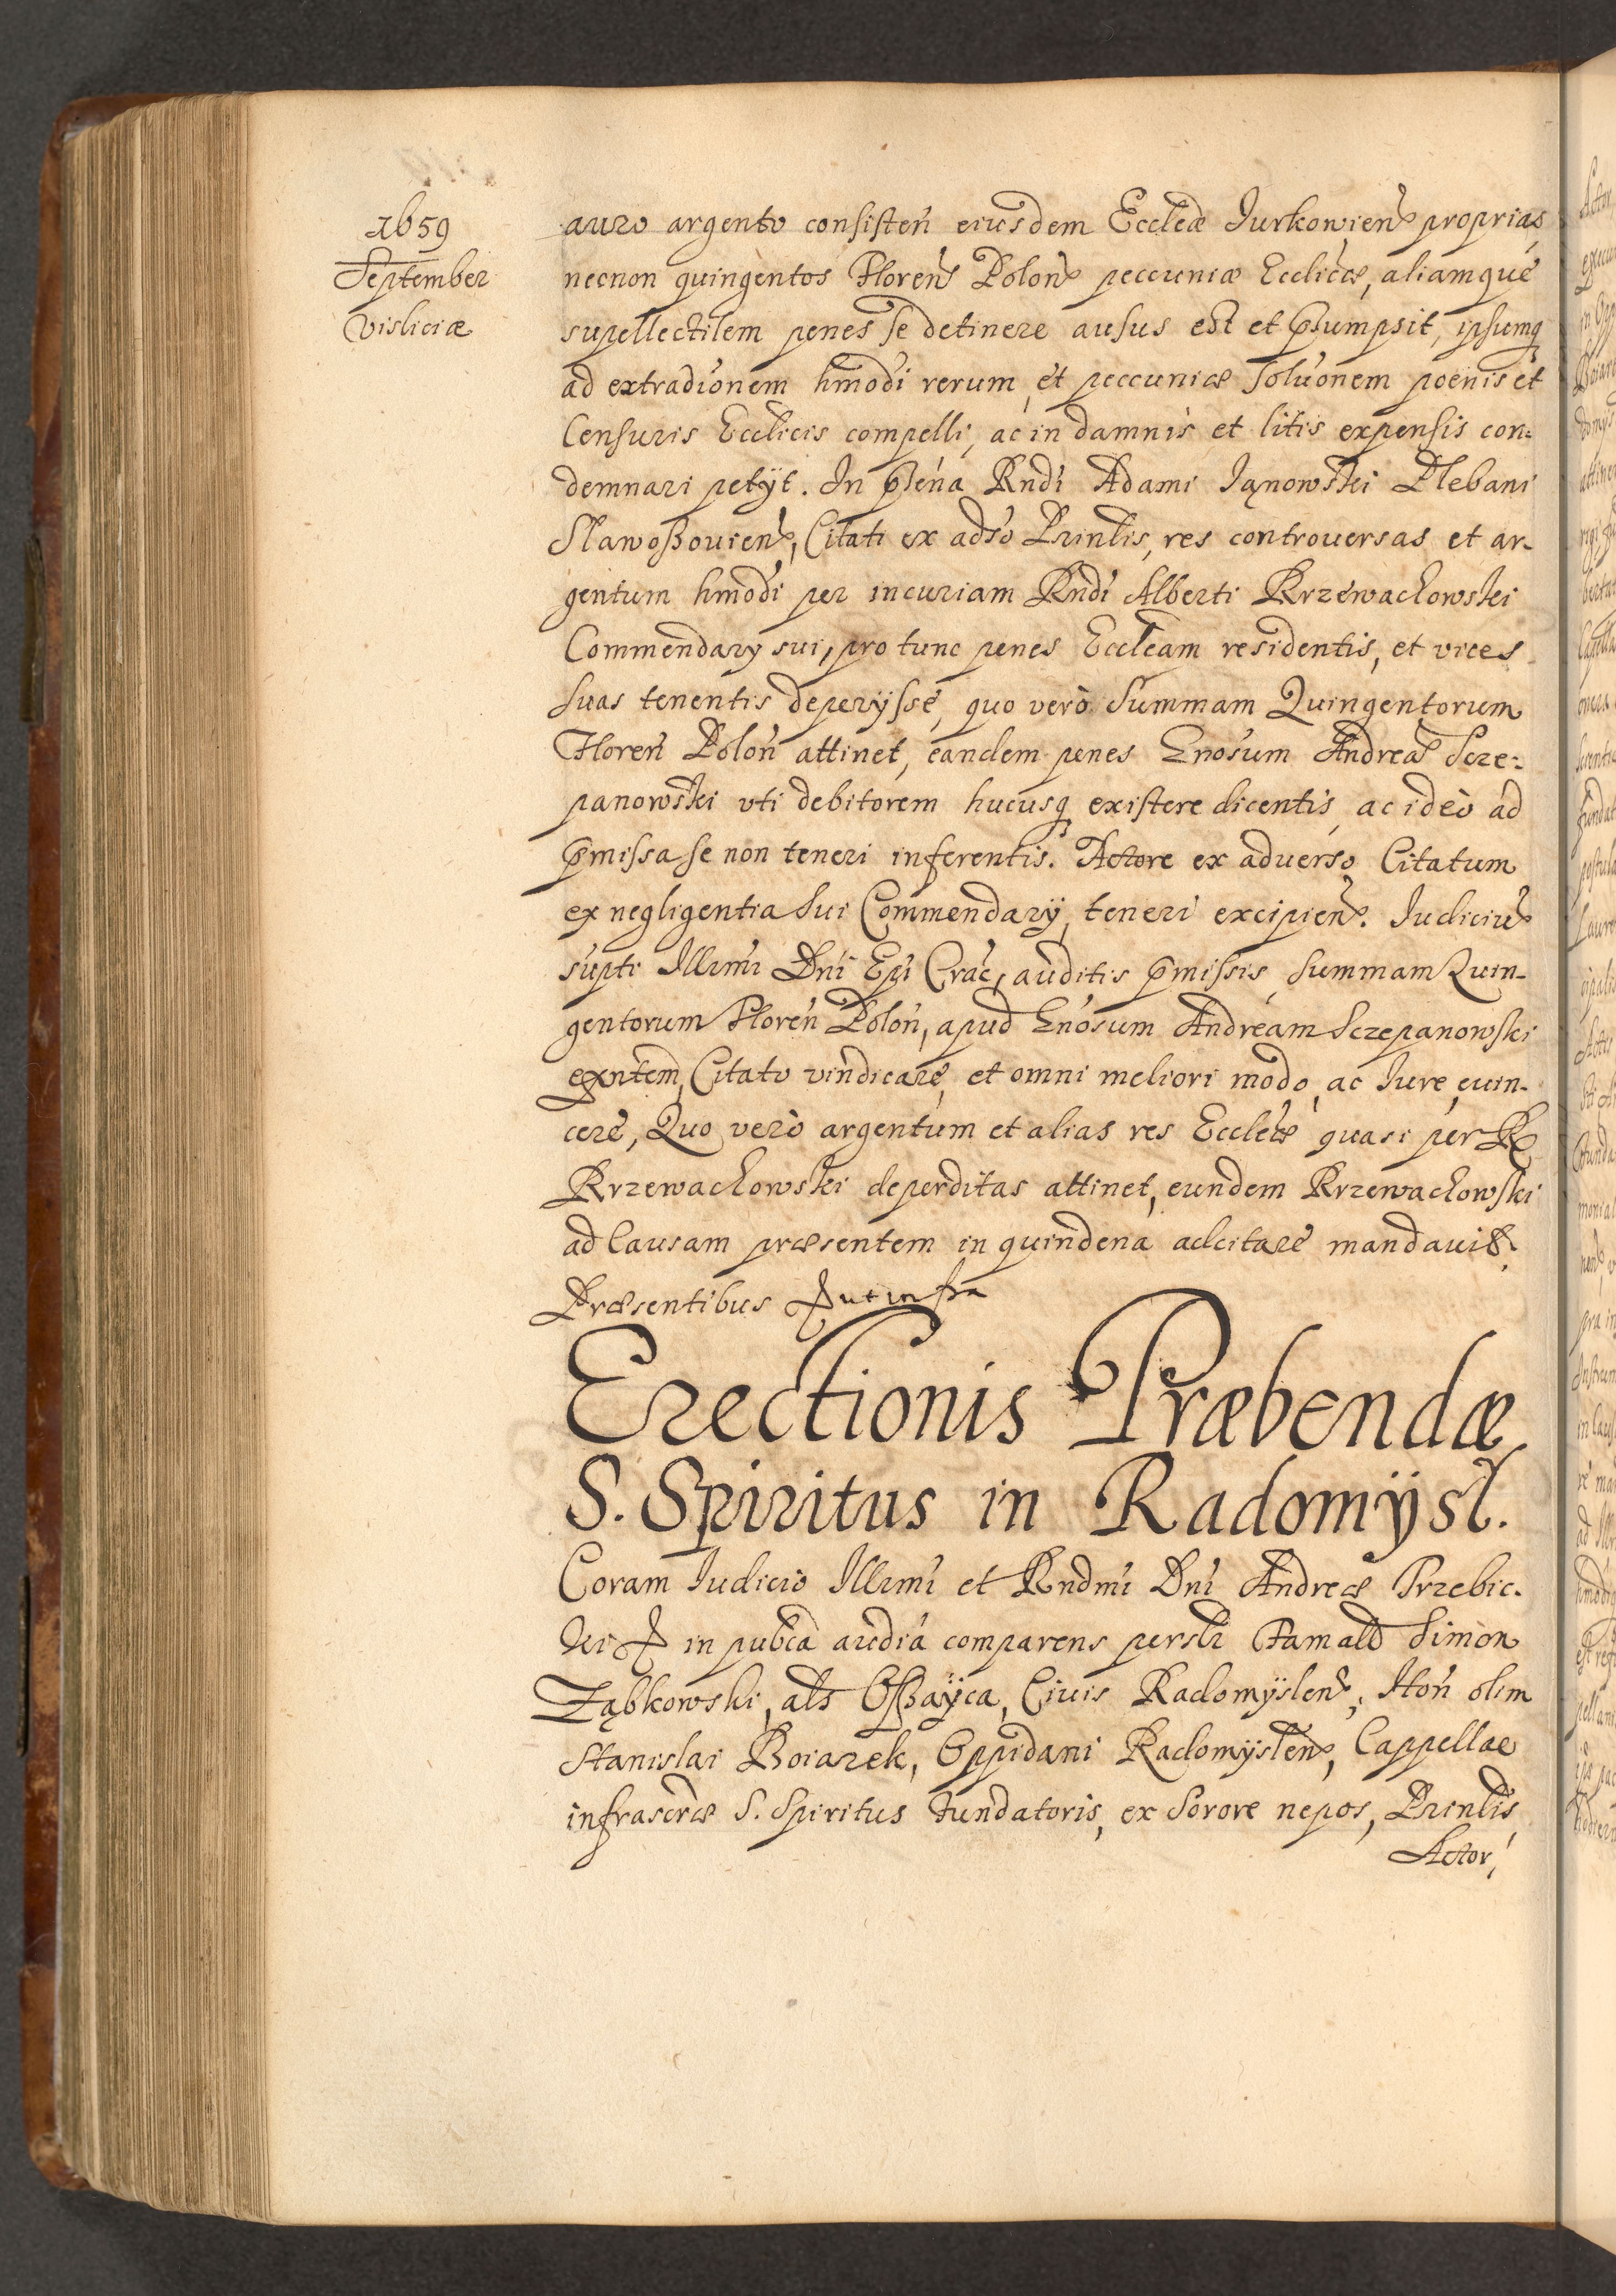 1659
September
Visliciæ
auro argento consisteń eiusdem Eccleæ Iurkowien̄ proprias
necnon quingentos Floren̄ Polon̄ peccuniæ Eccliĉæ, aliamque
supellectilem penes se detinere ausus est et p̄sumpsit, ipsumq
ad extradionem hmodi rerum, et peccuniæ soluonem poenis et
Censuris Ecclicis compelli, ac in damnis et litis expensis con=
demnari petÿt. In p̄sena Rndi Adami Iąnowski Plebani
Slawoßouien̄, Citati ex adso Prinlis, res controuersas et ar-
gentum hmodi per incuriam Rndi Alberti Krzewachowski
Commendary sui, pro tunc penes Eccleam residentis, et vices
suas tenentis deperÿsse, quo verò Summam Quingentorum
Floreń Poloń attinet, eandem penes Gnosum Andreā Scze=
panowski vti debitorem hucusq existere dicentis, ac ideò ad
p̄missa se non teneri inferentis. Actore ex aduerso Citatum
ex negligentia Sui Commendarÿ, teneri excipien̄. Iudiciū
supti Illrmi Dni Epi Crac, auditis p̄missis, Summam Quin-
gentorum Floreń Poloń, apud Gnosum Andream Sczepanowski
exntem, Citato vindicare, et omni meliori modo, ac Iure, euin-
cere, Quo verò argentum et alias res Eccleæ quasi per R̄
Krzewachowski deperditas attinet, eundem Krzewachowski
ad Causam præsentem in quindena adcitare mandauit.
Præsentibus ut infra
Erectionis Præbendæ
S. Spiritus in Radomÿsl.
Coram Iudicio Illrmi et Rndmi Dni Andreæ Trzebic-
ki in pubca audia comparens perslr Famatd Simon
Ząbkowski, als Oßaÿca, Ciuis Radomÿslen̄, Hoń olim
Stanislai Boiarek, Oppidani Radomÿslen̄, Cappellae
infrascrae S. Spiritus Fundatoris, ex Sorore nepos, Prinlis
Actor,